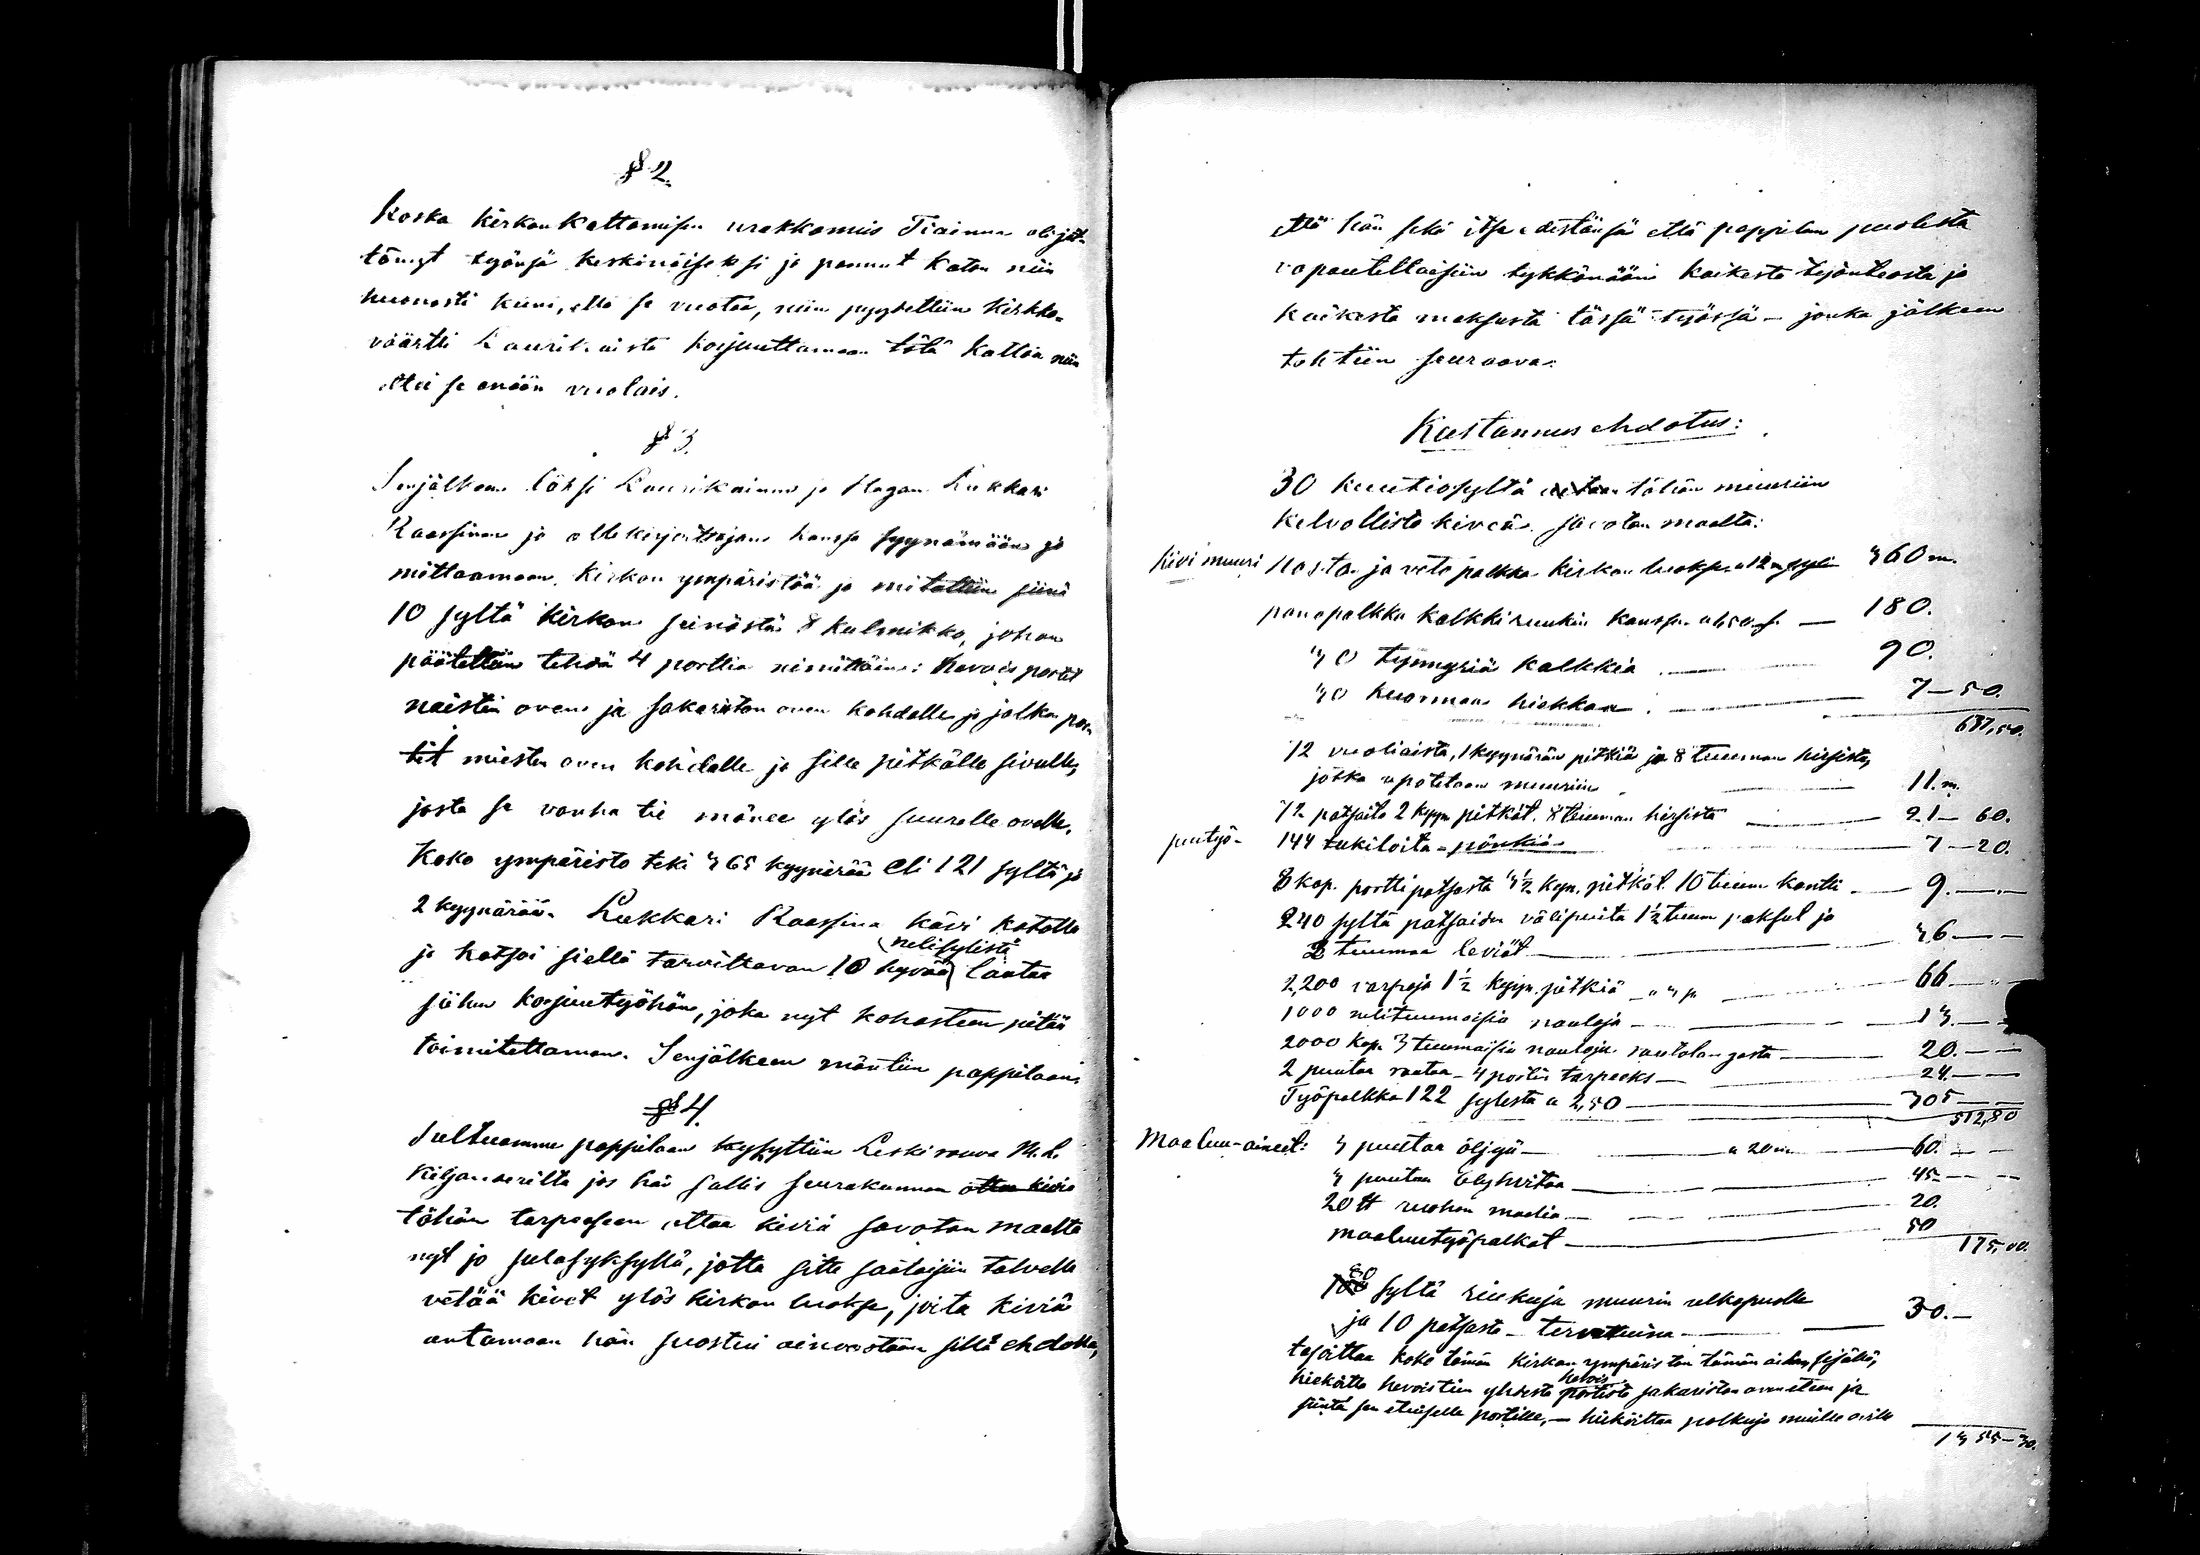 § 2.
Koska kirkon kattamisen urakkamies Tiainen oli jät-
tänyt työnsä keskinäiseksi ja pannut katon niin
huonosti kiini, että se vuotaa, niin pyydettiin kirkko-
väärtti Laurikaista korjuuttamaan tätä kattoa niin
ettei se enään vuotais.
§ 3.
Senjälkeen läksi Laurikainen ja Hagan Lukkari
Raassinan ja allekirjoittajan kanssa syynäämään ja
mittaamaan kirkon ympäristöä ja mitattiin siinä
10 syltä kirkon seinästä 8 kulmikko, johon
päätettiin tehdä 4 porttia nimittäin: hevois portit
naisten oven ja sakariston oven kohdalle ja jalka por-
tit miesten oven kohdalle ja sille pitkälle sivulle,
josta se vanha tie mänee ylös suurelle ovelle.
Koko ympäristo teki 365 kyynärää eli 121 syltä ja
2 kyynärää. Lukkari Raassina kävi katolla
nelisylistä
ja katsoi siellä tarvittavan 10 hyvää lautaa
siihen korjuutyöhön, joka nyt kohasteen pitää
toimitettaman. Senjälkeen mäntiin pappilaan.
§ 4.
Tultuamme pappilaan kysyttiin Leskirouva M. L.
Kiljanderilta jos hän sallis seurakunnan ottaa kiviä
tähän tarpeeseen ottaa kiviä savotan maalta
nyt jo sulasyksyllä, jotta sitte saataisiin talvella
vetää kivet ylös kirkon luokse, joita kiviä
antamaan hän suostui ainoastaan sillä ehdolla,
että hän sekä itse edestänsä että pappilan puolesta
vapautettaisiin tykkönään kaikesta työnteosta ja
kaikesta maksusta tässä työssä – jonka jälkeen
tehtiin seuraava:
Kustannus ehdotus:
30 kuutiosyltä tähän muuriin
kelvollista kiveä savotan maalta:
Kivi muuri Nosto ja veto palkka kirkon luokse a 12 m syli 360 m.
panopalkka kalkki ruukin kanssa — 180.
30 tynnyriä kalkkia — 90.
30 kuormaa hiekkaa — 7–50.
637,50.
72 vuoliaista, 1 kyynärän pitkiä ja 8 tuuman hirsistä,
jotka upotetaan muuriin — 11. m.
72 patsaita 2 kyyn pitkät. 8 tuuman hirsistä — 21– 60.
puutyö- 144 tukiloita - pönkiä — 7–20.
8 kap. portti patsasta 3½ kyn. pitkät. 10 tuum kantti — 9.—
240 syltä patsaiden välipuita 1½ tuum paksut ja
3 tuumaa leviät — 36 —
2,200 varpoja 1½ kyyn. pitkiä a 3 p — 66 —
1000 nelituumaisia nauloja — 13.—
2000 kap. 3 tuumaisia nauloja rautalangasta — 20.—
2 puutaa rautaa - 4 portin tarpeeks — 24.—
Työpalkka 122 sylestä a 2,50 — 305 —
512,80
Maaluu-aineet: 3 puutaa öljyä — a 20 m — 60.—
3 puutaa blyhvitaa — 45.—
20 ℔ ruohon maalia — 20.
maaluutyöpalkat — 50
175,00.
80
100 syltä riukuja muurin ulkopuolle
ja 10 patsasta – tervattuina — 30.—
tasoittaa koko tämän kirkon ympäriston tämän aidan sisällä,
hevois
hiekoitta hevoistien yhdestä portista sakariston oven eteen ja
siitä sen etuiselle portille, – hiekoittaa polkuja muille oville
1355–30.